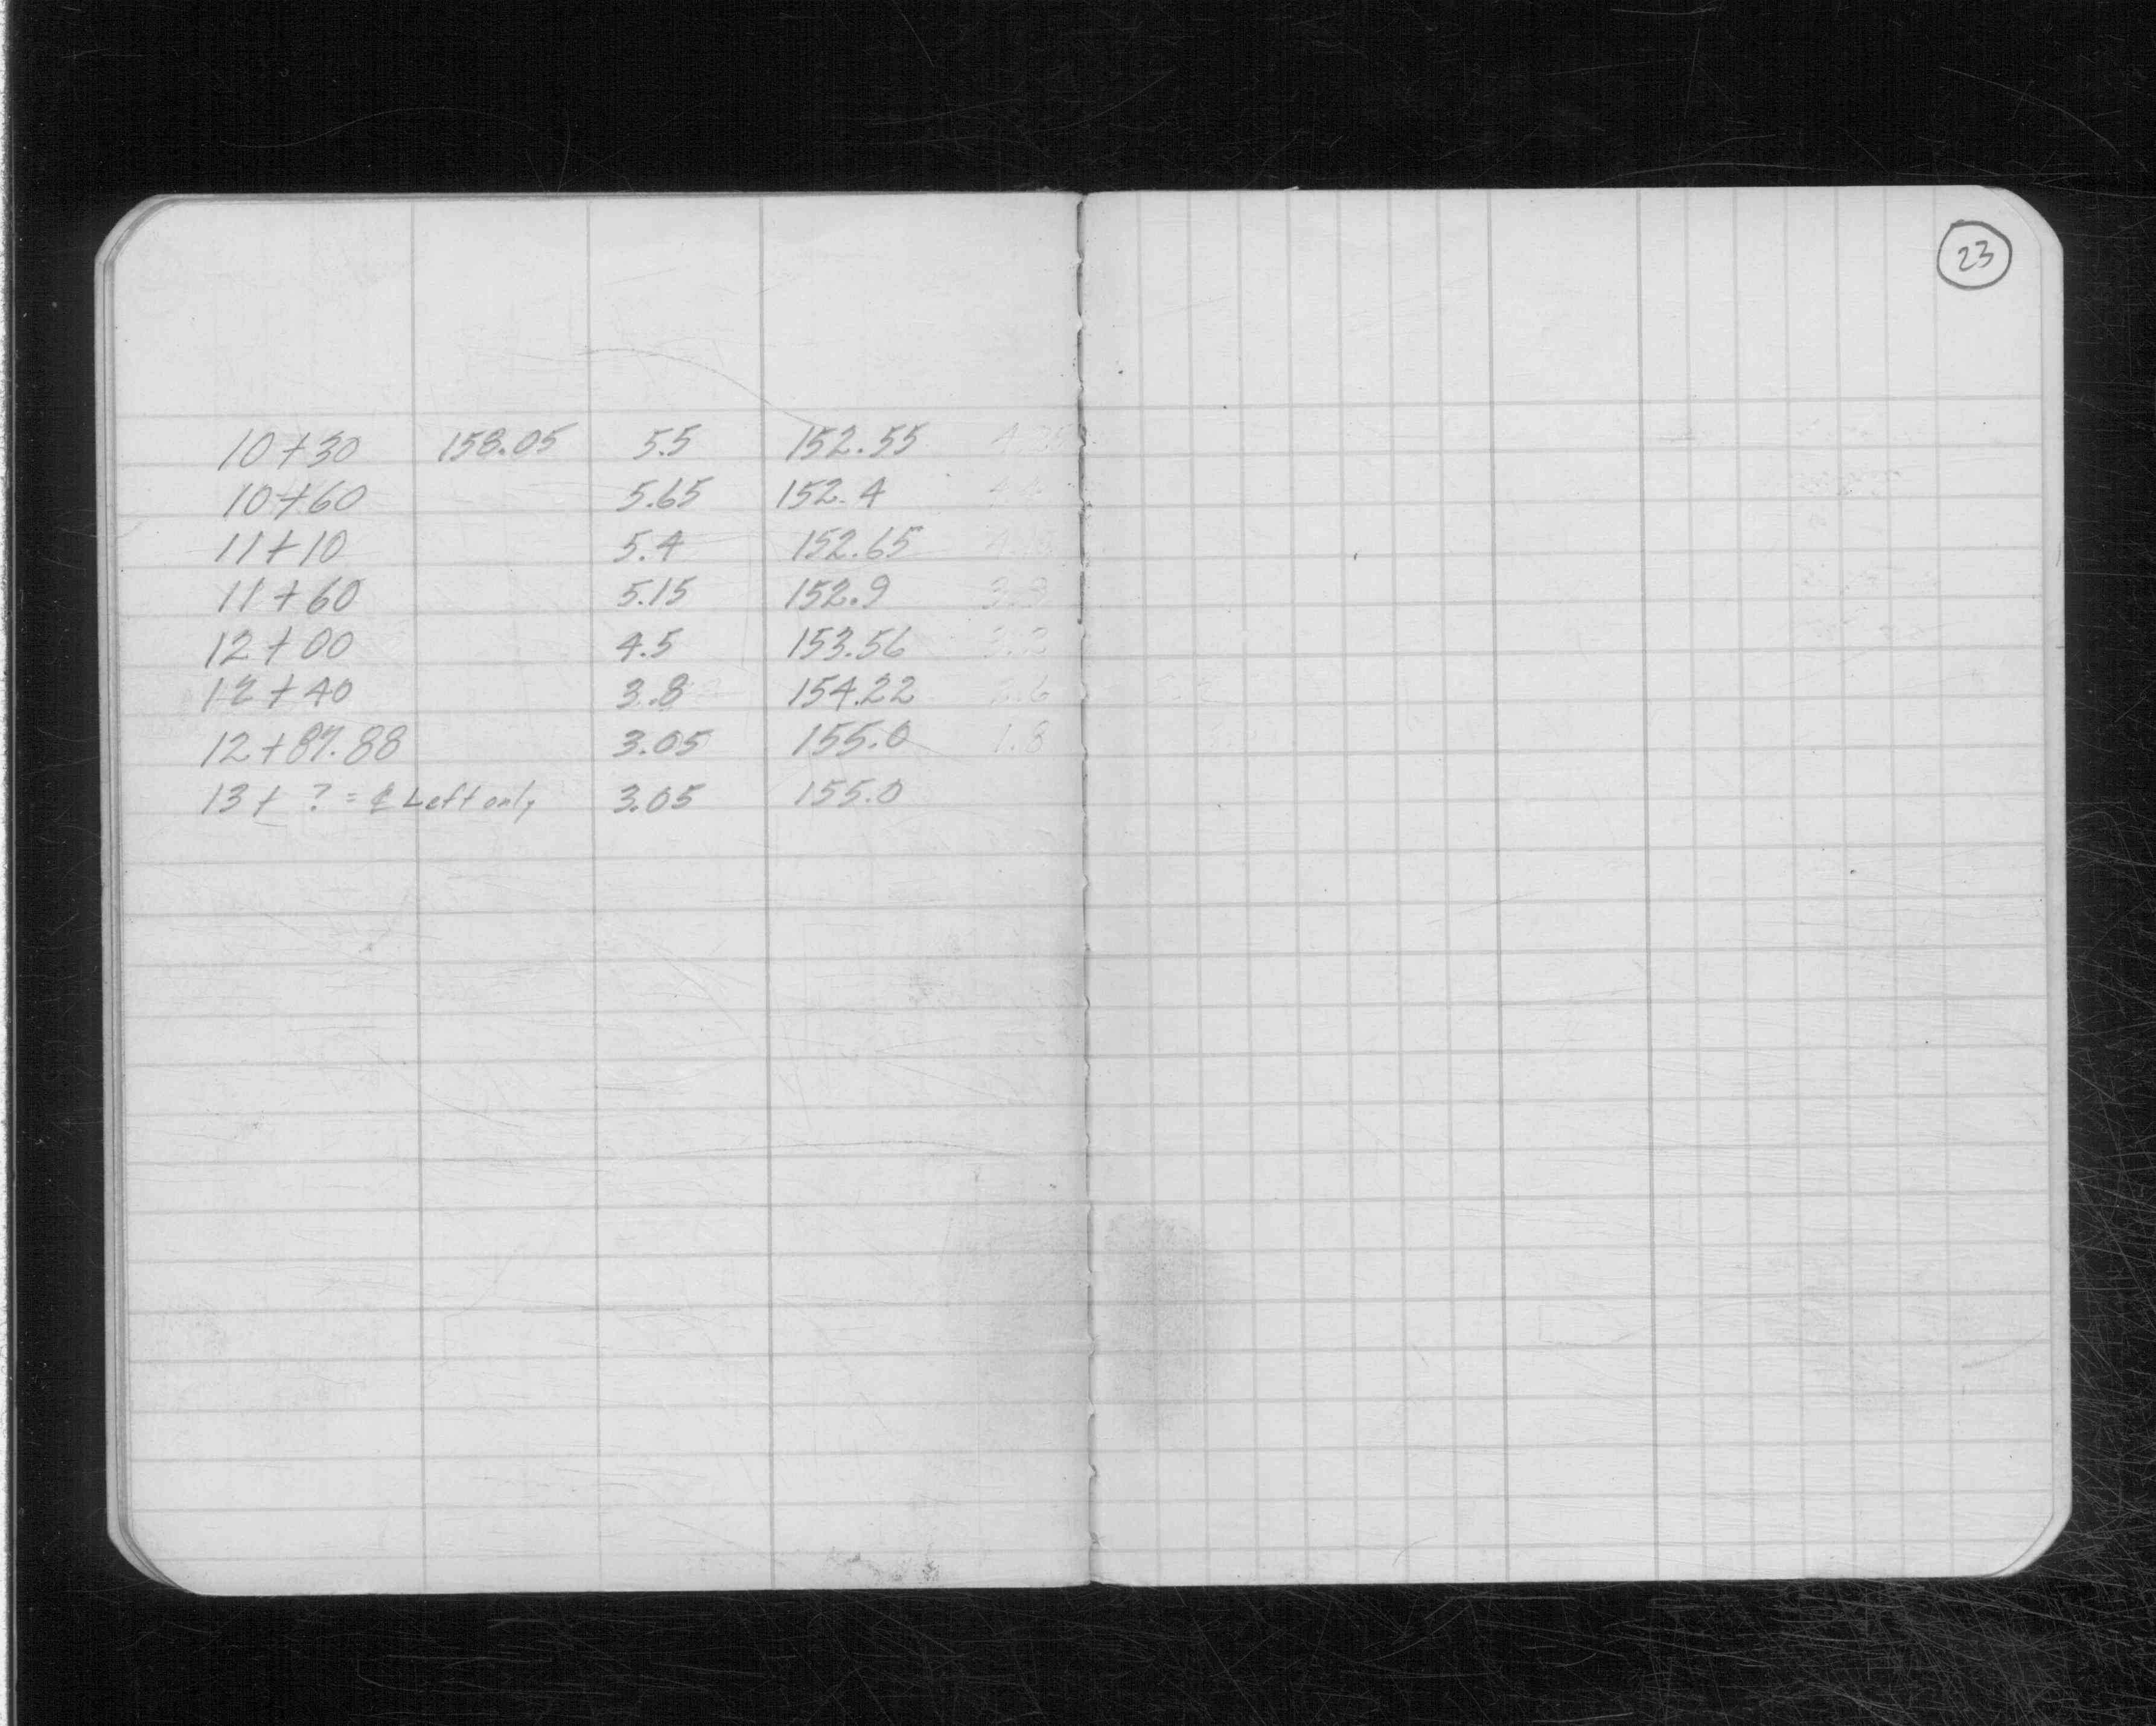 23
10+30 158.05 5.5 152.55
10+60 5.65 152.4
11+10 5.4 152.65
11+60 5.15 152.9 3.9
12+00 4.5 153.56
12+40 3.8 154.22 2.6
12+87.88 3.05 155.0 1.8
13+ ? = ℄ Left only 3.05 155.0